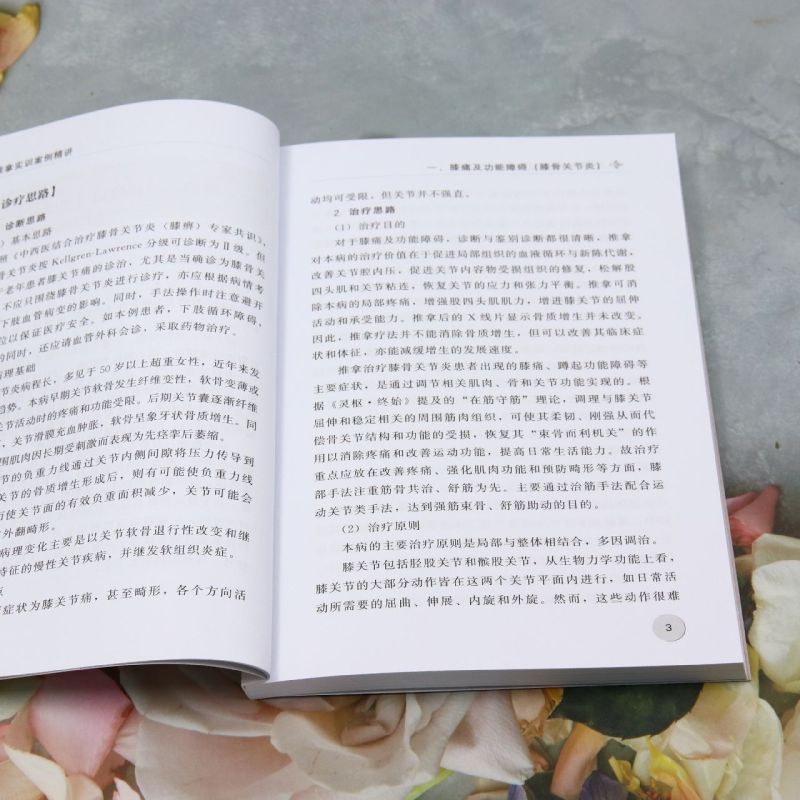 推拿实训案例精讲
诊疗思路】
诊断思路
）基本思路
《中西医结合治疗膝骨关节炎（膝痹）专家共识》，
骨关节炎按Kellgren-Lawrence 分级可诊断为Ⅱ级。但
于老年患者膝关节痛的诊治，尤其是当确诊为膝骨关
不应只围绕膝骨关节炎进行诊疗，亦应根据病情考
下肢血管病变的影响。同时，手法操作时注意避开
位以保证医疗安全。如本例患者，下肢循环障碍，
的同时，还应请血管外科会诊，采取药物治疗。
病理基础
节炎病程长，多见于 50 岁以上超重女性，近年来发
趋势。本病早期关节软骨发生纤维变性，软骨变薄或
关节活动时的疼痛和功能受限。后期关节囊逐渐纤维
，关节滑膜充血肿胀，软骨呈象牙状骨质增生。同
围肌肉因长期受刺激而表现为先痉挛后萎缩。
节的负重力线通过关节内侧间隙将压力传导到
关节的骨质增生形成后，则有可能使负重力线
而使关节面的有效负重面积减少，关节可能会
外翻畸形。
病理变化主要是以关节软骨退行性改变和继
特征的慢性关节疾病，并继发软组织炎症。
症状为膝关节痛，甚至畸形，各个方向活
一、膝痛及功能障碍（膝骨关节炎）
动均可受限，但关节并不强直。
2. 治疗思路
（1）治疗目的
对于膝痛及功能障碍，诊断与鉴别诊断都很清晰，推拿
对本病的治疗价值在于促进局部组织的血液循环与新陈代谢，
改善关节腔内压，促进关节内容物受损组织的修复，松解股
四头肌和关节粘连，恢复关节的应力和张力平衡。推拿可消
除本病的局部疼痛，增强股四头肌肌力，增进膝关节的屈伸
活动和承受能力。推拿后的 X 线片显示骨质增生并未改变。
因此，推拿疗法并不能消除骨质增生，但可以改善其临床症
状和体征，亦能减缓增生的发展速度。
推拿治疗膝骨关节炎患者出现的膝痛、蹲起功能障碍等
主要症状，是通过调节相关肌肉、骨和关节功能实现的。根
据《灵枢·终始》提及的“在筋守筋”理论，调理与膝关节
屈伸和稳定相关的周围筋肉组织，可使其柔韧、刚强从而代
偿骨关节结构和功能的受损，恢复其“束骨而利机关”的作
用以消除疼痛和改善运动功能，提高日常生活能力。故治疗
重点应放在改善疼痛、强化肌肉功能和预防畸形等方面，膝
部手法注重筋骨共治、舒筋为先。主要通过治筋手法配合运
动关节类手法，达到强筋束骨、舒筋助动的目的。
（2）治疗原则
本病的主要治疗原则是局部与整体相结合，多因调治。
膝关节包括胫股关节和髌股关节，从生物力学功能上看，
膝关节的大部分动作皆在这两个关节平面内进行，如日常活
动所需要的屈曲、伸展、内旋和外旋。然而，这些动作很难
3